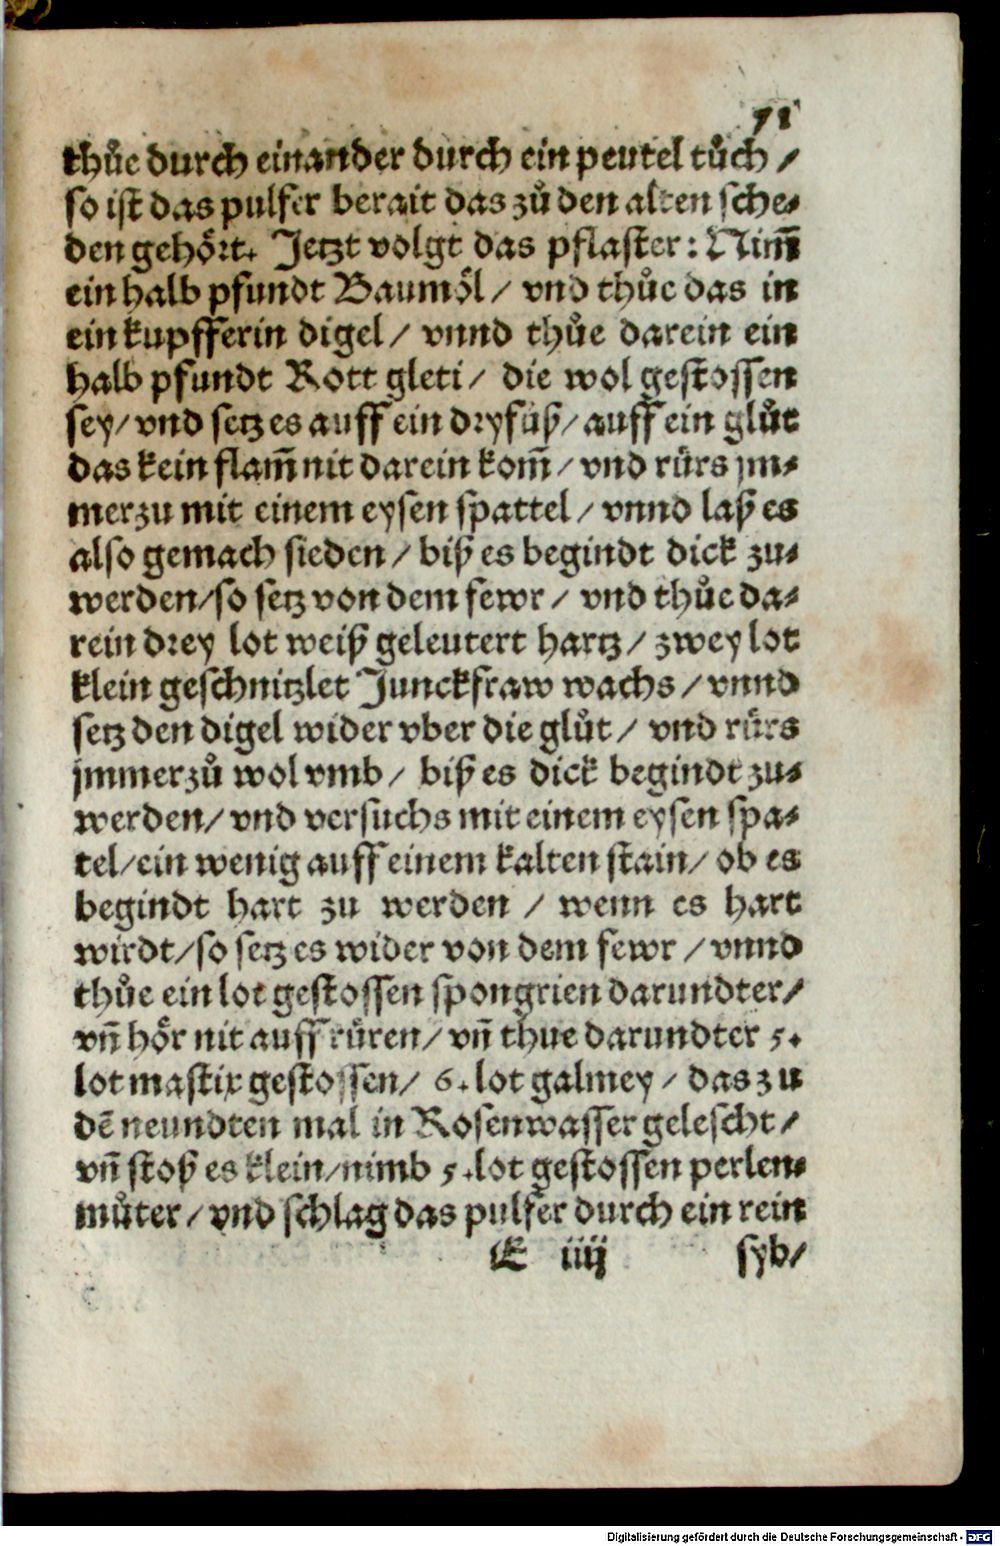 71
thůe durch einander durch ein peutel tůch /
so ist das pulfer berait das zů den alten sche⸗
den gehört. Jetzt volgt das pflaster: Nim̄
ein halb pfundt Baumöl / vnd thůe das in
ein kupfferin digel / vnnd thůe darein ein
halb pfundt Rott gleti / die wol gestossen
sey / vnd setz es auff ein dryfůß / auff ein glůt
das kein flam̄ nit darein kom̄ / vnd rürs jm⸗
merzu mit einem eysen spattel / vnnd laß es
also gemach sieden / biß es begindt dick zu⸗
werden / so setz von dem fewr / vnd thůe da⸗
rein drey lot weiß geleutert hartz / zwey lot
klein geschnitzlet Junckfraw wachs / vnnd
setz den digel wider vber die glůt / vnd rürs
jmmerzů wol vmb / biß es dick begindt zu⸗
werden / vnd versuchs mit einem eysen spa⸗
tel / ein wenig auff einem kalten stain / ob es
begindt hart zu werden / wenn es hart
wirdt / so setz es wider von dem fewr / vnnd
thůe ein lot gestossen spongrien darundter /
vn̄ hör nit auff rüren / vn̄ thue darundter 5.
lot mastix gestossen / 6. lot galmey / das zu
dē neundten mal in Rosenwasser gelescht /
vn̄ stoß es klein / nimb 5. lot gestossen perlen⸗
můter / vnd schlag das pulfer durch ein rein
K iiij syb /
Digitalisierung gefördert durch die Deutsche Forschungsgemeinschaft - DFG